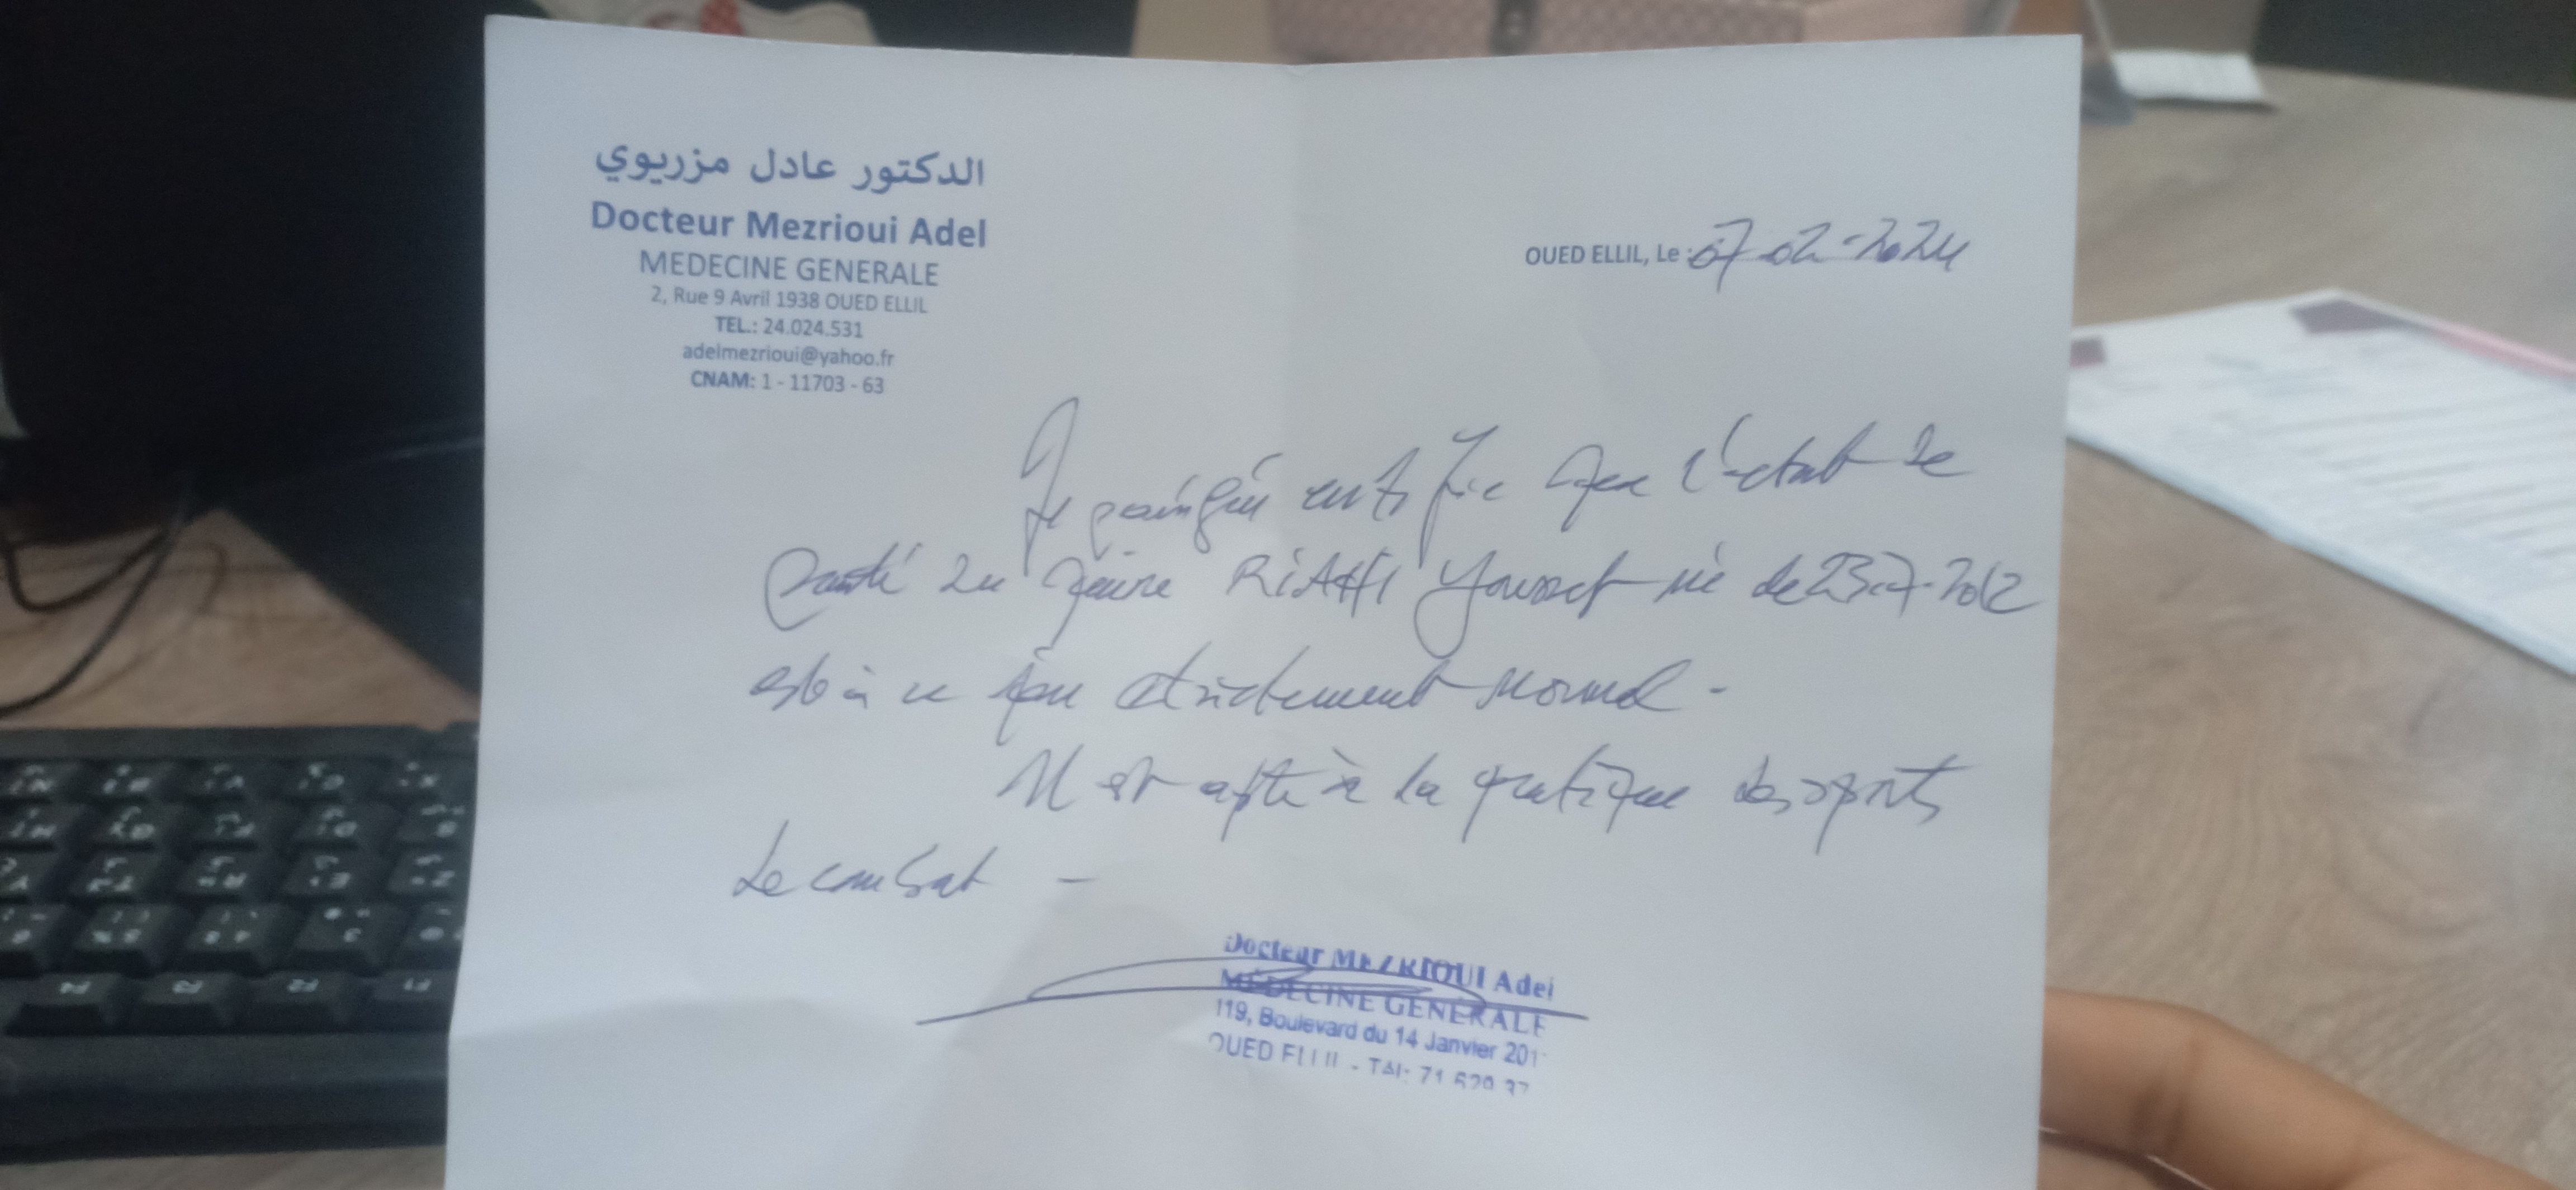 الدكتور عادل مزريوي
Docteur Mezrioui Adel
MEDECINE GENERALE
2, Rue 9 Avril 1938 OUED ELLIL
TEL.: 24.024.531
adelmezrioui@yahoo.fr
CNAM: 1 - 11703 - 63
OUED ELLIL, Le : 07-02-2024
Je soussigné certifie que l'état de
santé du jeune RIAHI Youssef né le 23-7-2012
est à ce jour strictement normal -
Il est apte à la pratique des sports
de combat -
Docteur MEZRIOUI Adel
MÉDECINE GENERALE
119, Boulevard du 14 Janvier 201
OUED ELLIL - Tél: 71 629 37